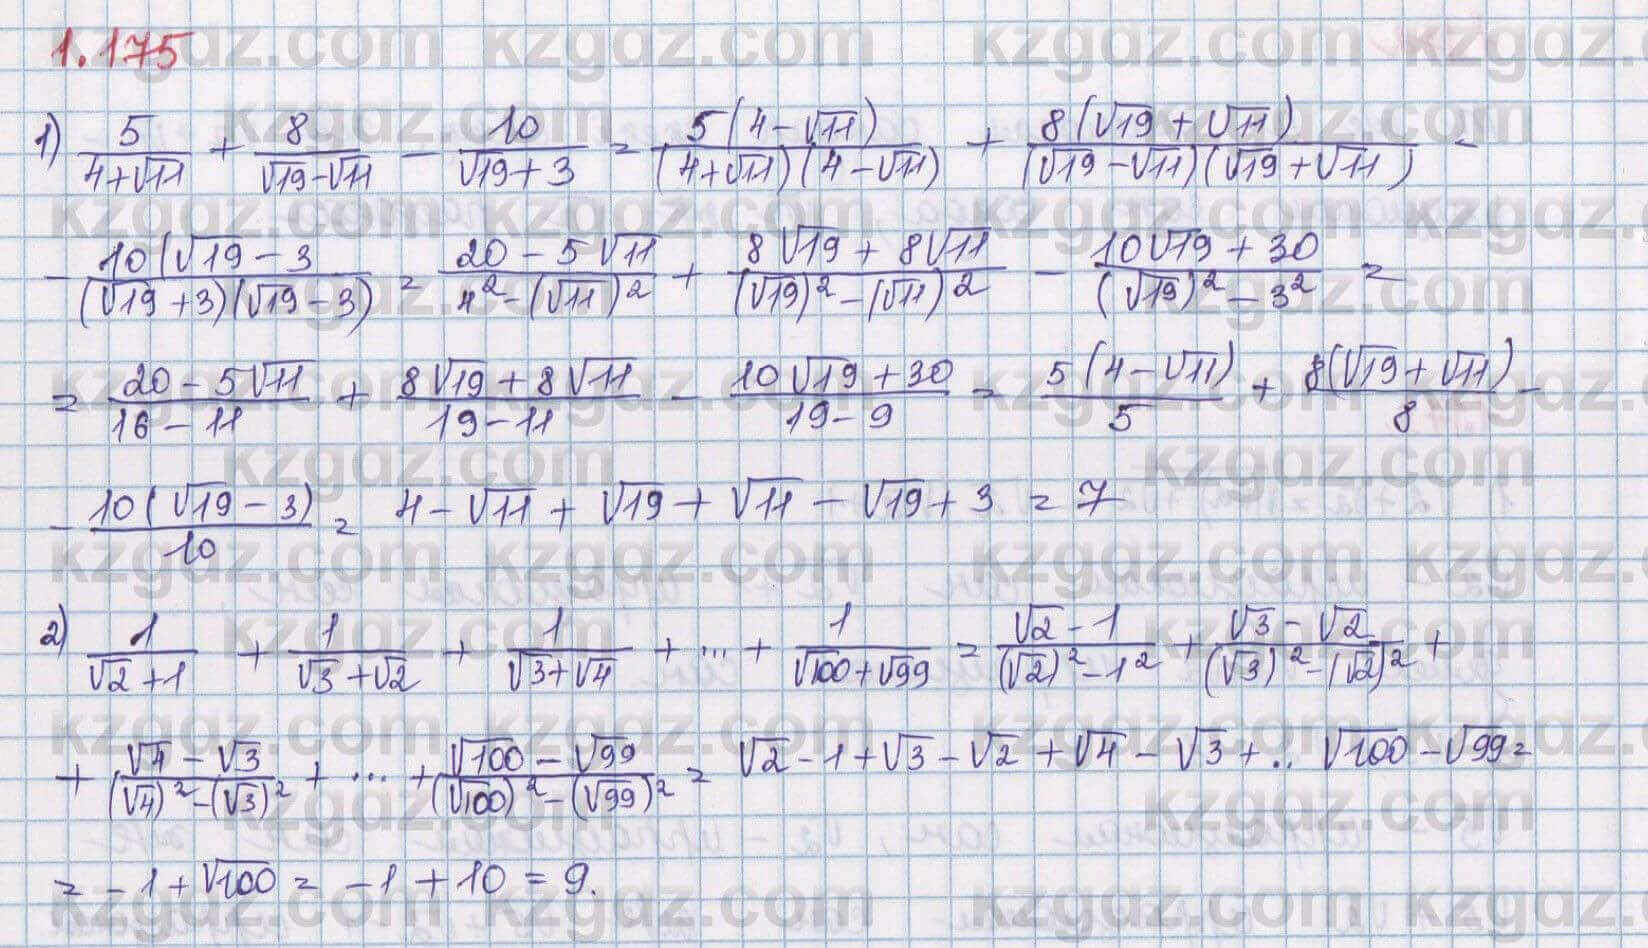 1.175
1) 5/(4+√11) + 8/(√19-√11) - 10/(√19+3) = 5(4-√11)/((4+√11)(4-√11)) + 8(√19+√11)/((√19-√11)(√19+√11)) -
- 10(√19-3/((√19+3)(√19-3)) = (20-5√11)/(4²-(√11)²) + (8√19+8√11)/((√19)²-(√11)²) - (10√19+30)/((√19)²-3²) =
= (20-5√11)/(16-11) + (8√19+8√11)/(19-11) - (10√19+30)/(19-9) = 5(4-√11)/5 + 8(√19+√11)/8 -
- 10(√19-3)/10 = 4-√11+√19+√11-√19+3 = 7
2) 1/(√2+1) + 1/(√3+√2) + 1/(√3+√4) + ... + 1/(√100+√99) = (√2-1)/((√2)²-1²) + (√3-√2)/((√3)²-(√2)²) +
+ (√4-√3)/((√4)²-(√3)²) + ... + (√100-√99)/((√100)²-(√99)²) = √2-1+√3-√2+√4-√3+... √100-√99 =
= -1+√100 = -1+10 = 9.
kzgdz.com